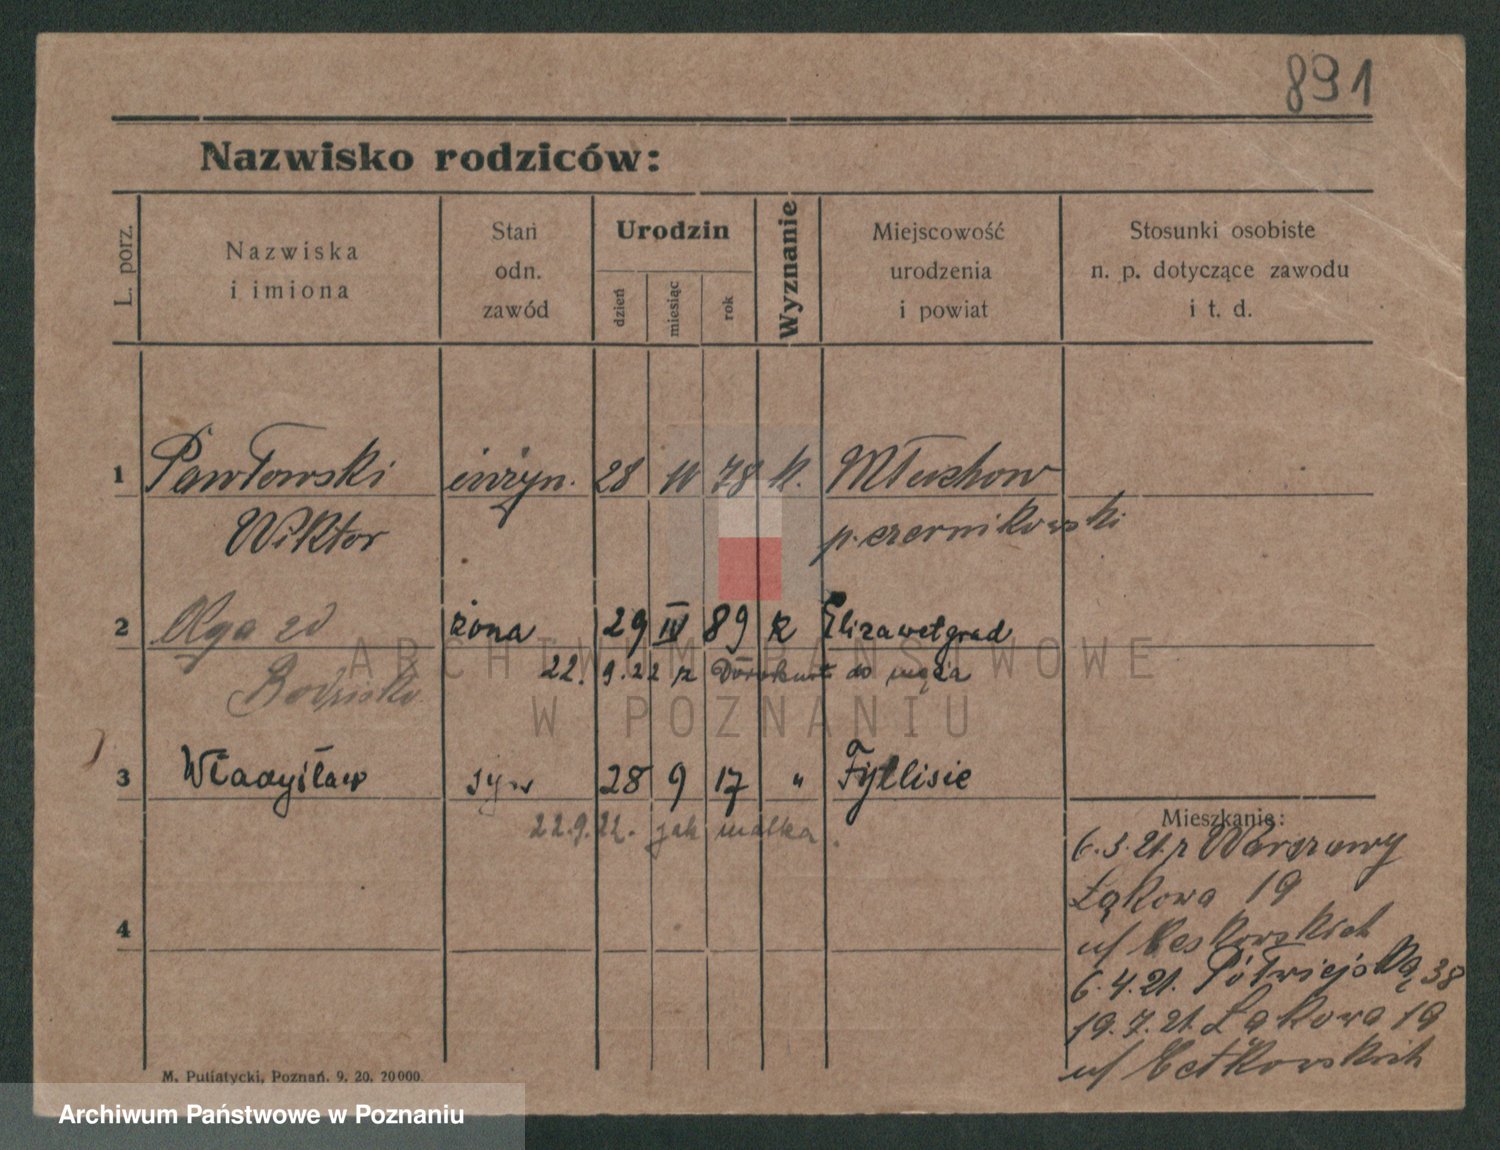 891
Nazwisko rodziców:
L. porz.
Nazwiska
i imiona
Stan
odn.
zawód
Urodzin
dzień
miesiąc
rok
Wyznanie
Miejscowość
urodzenia
i powiat
Stosunki osobiste
n. p. dotyczące zawodu
i t. d.
1 Pawłowski inżyn. 28 78 k.
Wiktor p.
2 Olga żona 29 IV 89 k Elizawetgrad
22. 9. 22 z do męża
3 Władysław syn 28 9 17 " Tyflisie
22.9.22. jak matka.
4
Mieszkanie:
6.3.21. z Warszawy
Łąkowa 19
u/
6.4.21. Półwiejska 38
19.7.21. Łąkowa 19
u/
M. Putiatycki, Poznań. 9. 20. 20000.
ARCHIWUM PAŃSTWOWE
W POZNANIU
Archiwum Państwowe w Poznaniu